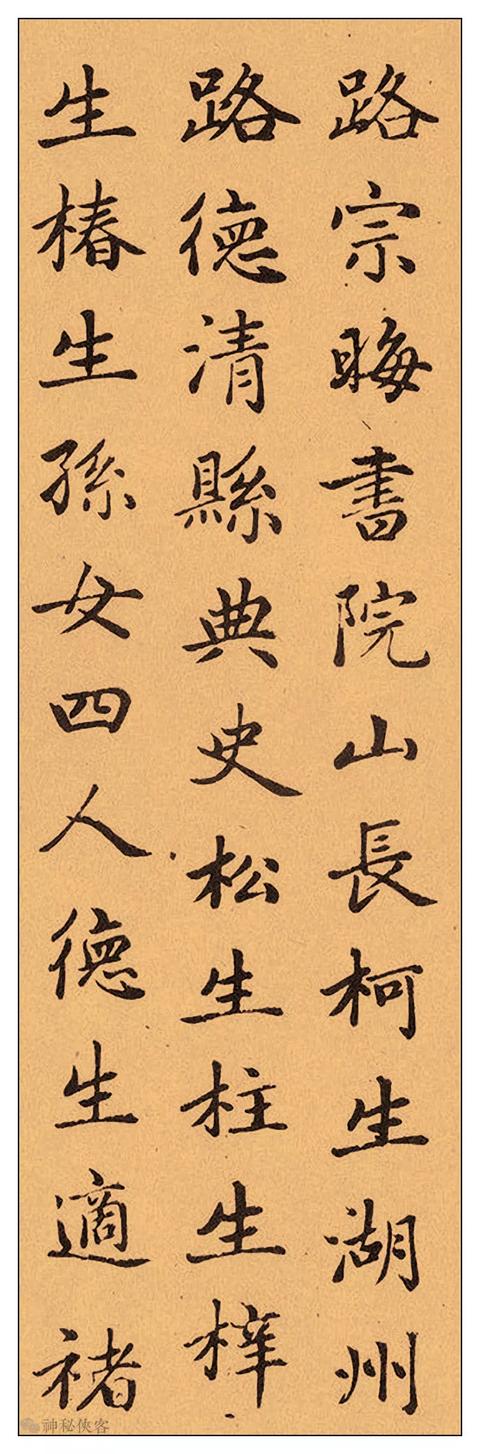 路宗晦書院山長柯生湖州
路德清縣典史松生柱生梓
生椿生孫女四人德生適褚
神秘俠客